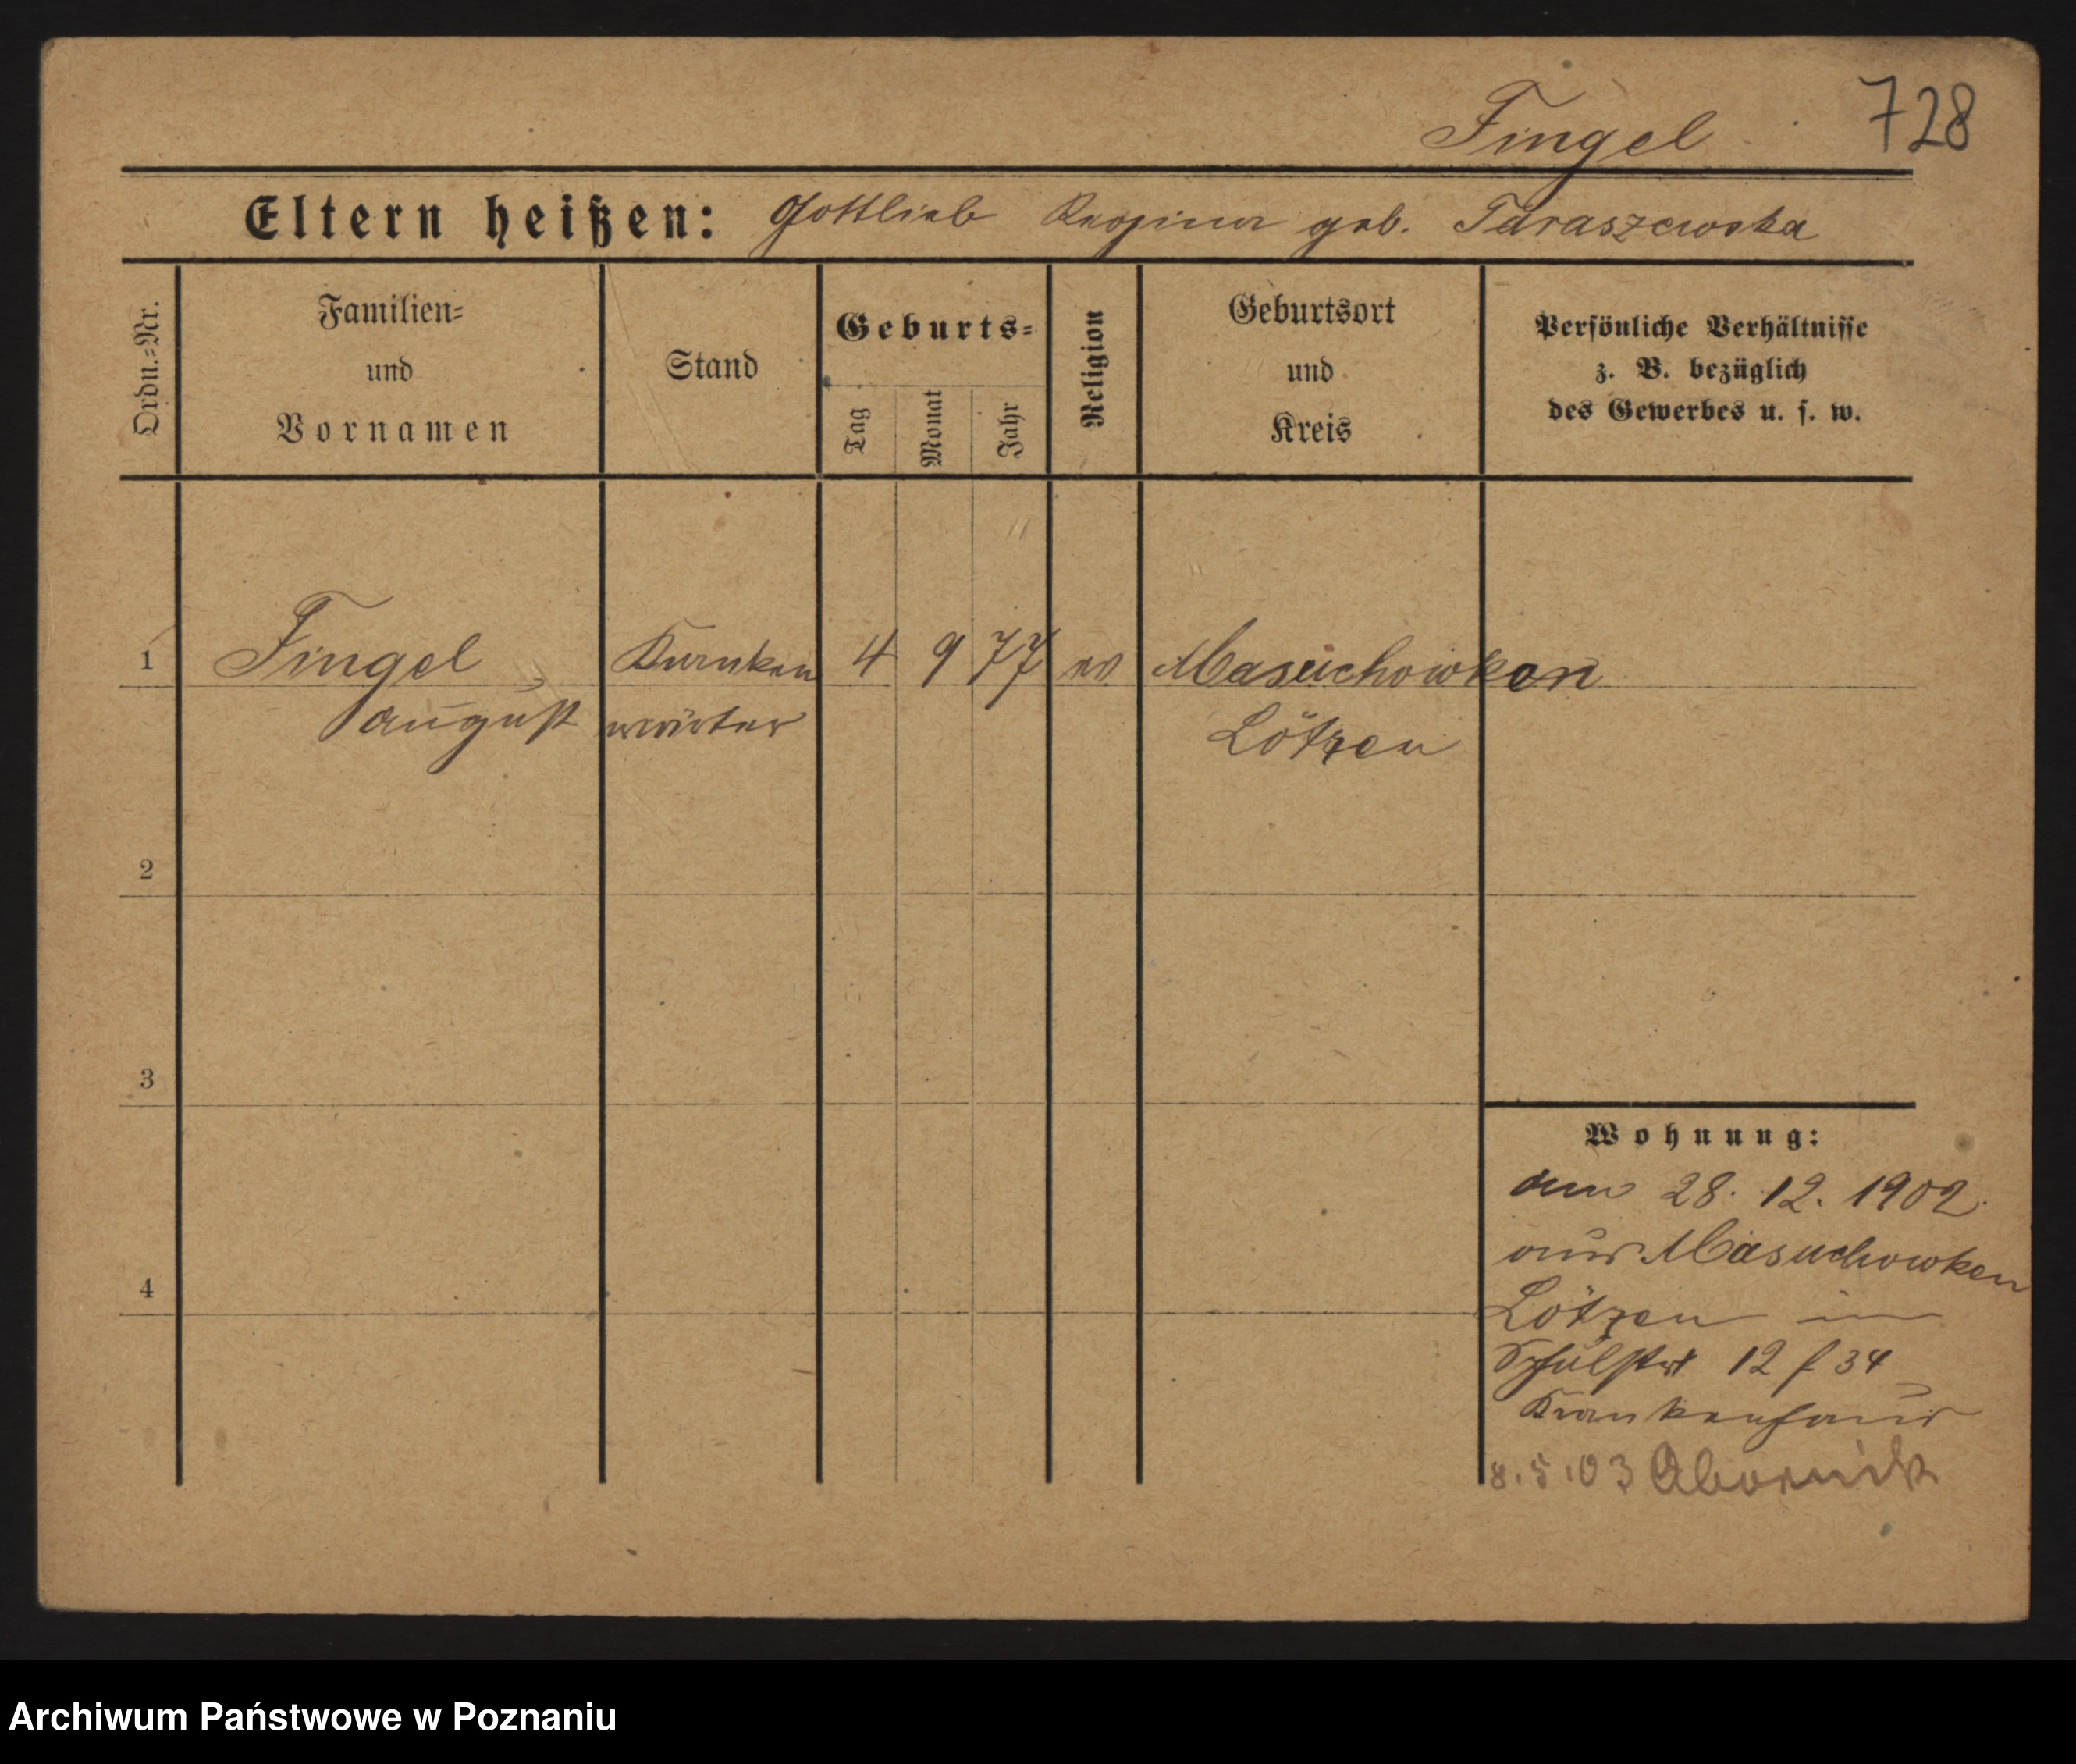 Fingel 728
Eltern heißen: Gottlieb Regina geb. Taraszewska
Ordn.=Nr.
Familien=
und
Vornamen
Stand
Geburts=
Tag
Monat
Jahr
Religion
Geburtsort
und
Kreis
Persönliche Verhältnisse
z. B. bezüglich
des Gewerbes u. s. w.
1 Fingel Kranken 4 9 77 ev Masuchowken
August wärter Lötzen
2
3
4
Wohnung:
am 28. 12. 1902.
aus Masuchowken
Lötzen in
Schulstr 12 f 34
Krankenhaus
8.5.03 Obornik
Archiwum Państwowe w Poznaniu